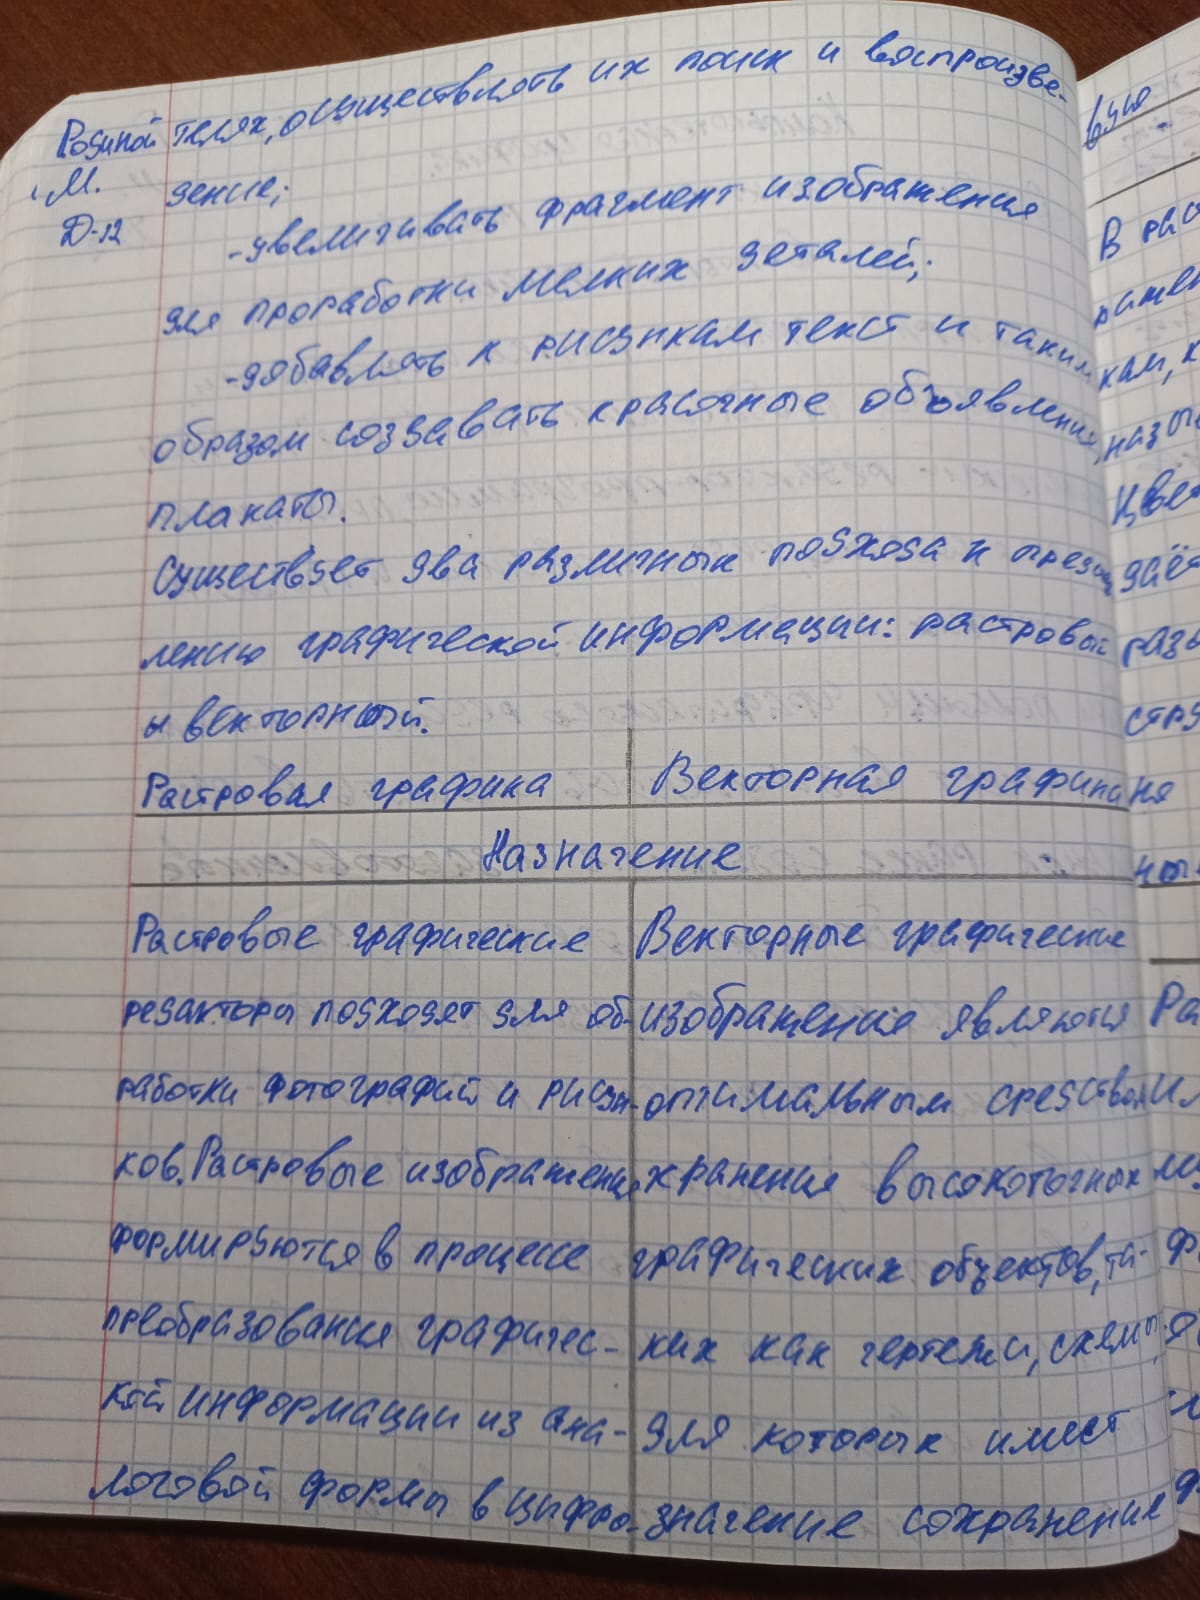 Родиной телях, осуществлять их поиск и воспроизве-
М. дение;
Д-12
-увеличивать фрагмент изображения
для проработки мелких деталей;
-добавлять к рисункам текст и таким
образом создавать красочные объявления,
плакаты.
Существует два различных подхода к представ
лению графической информации: растровый
и векторный.
Растровая графика Векторная графика
Назначение
Растровые графические
редакторы подходят для об-
работки фотографий и рисун-
ков. Растровые изображения
формируются в процессе
преобразования графичес-
кой информации из ана-
логовой формы в цифро-
Векторные графические
изображения являются
оптимальным средством
хранения высокоточных
графических объектов, та-
ких как чертежи, схемы,
для которых имеет
значение сохранение
В рас
кам, к
назы
Цвет